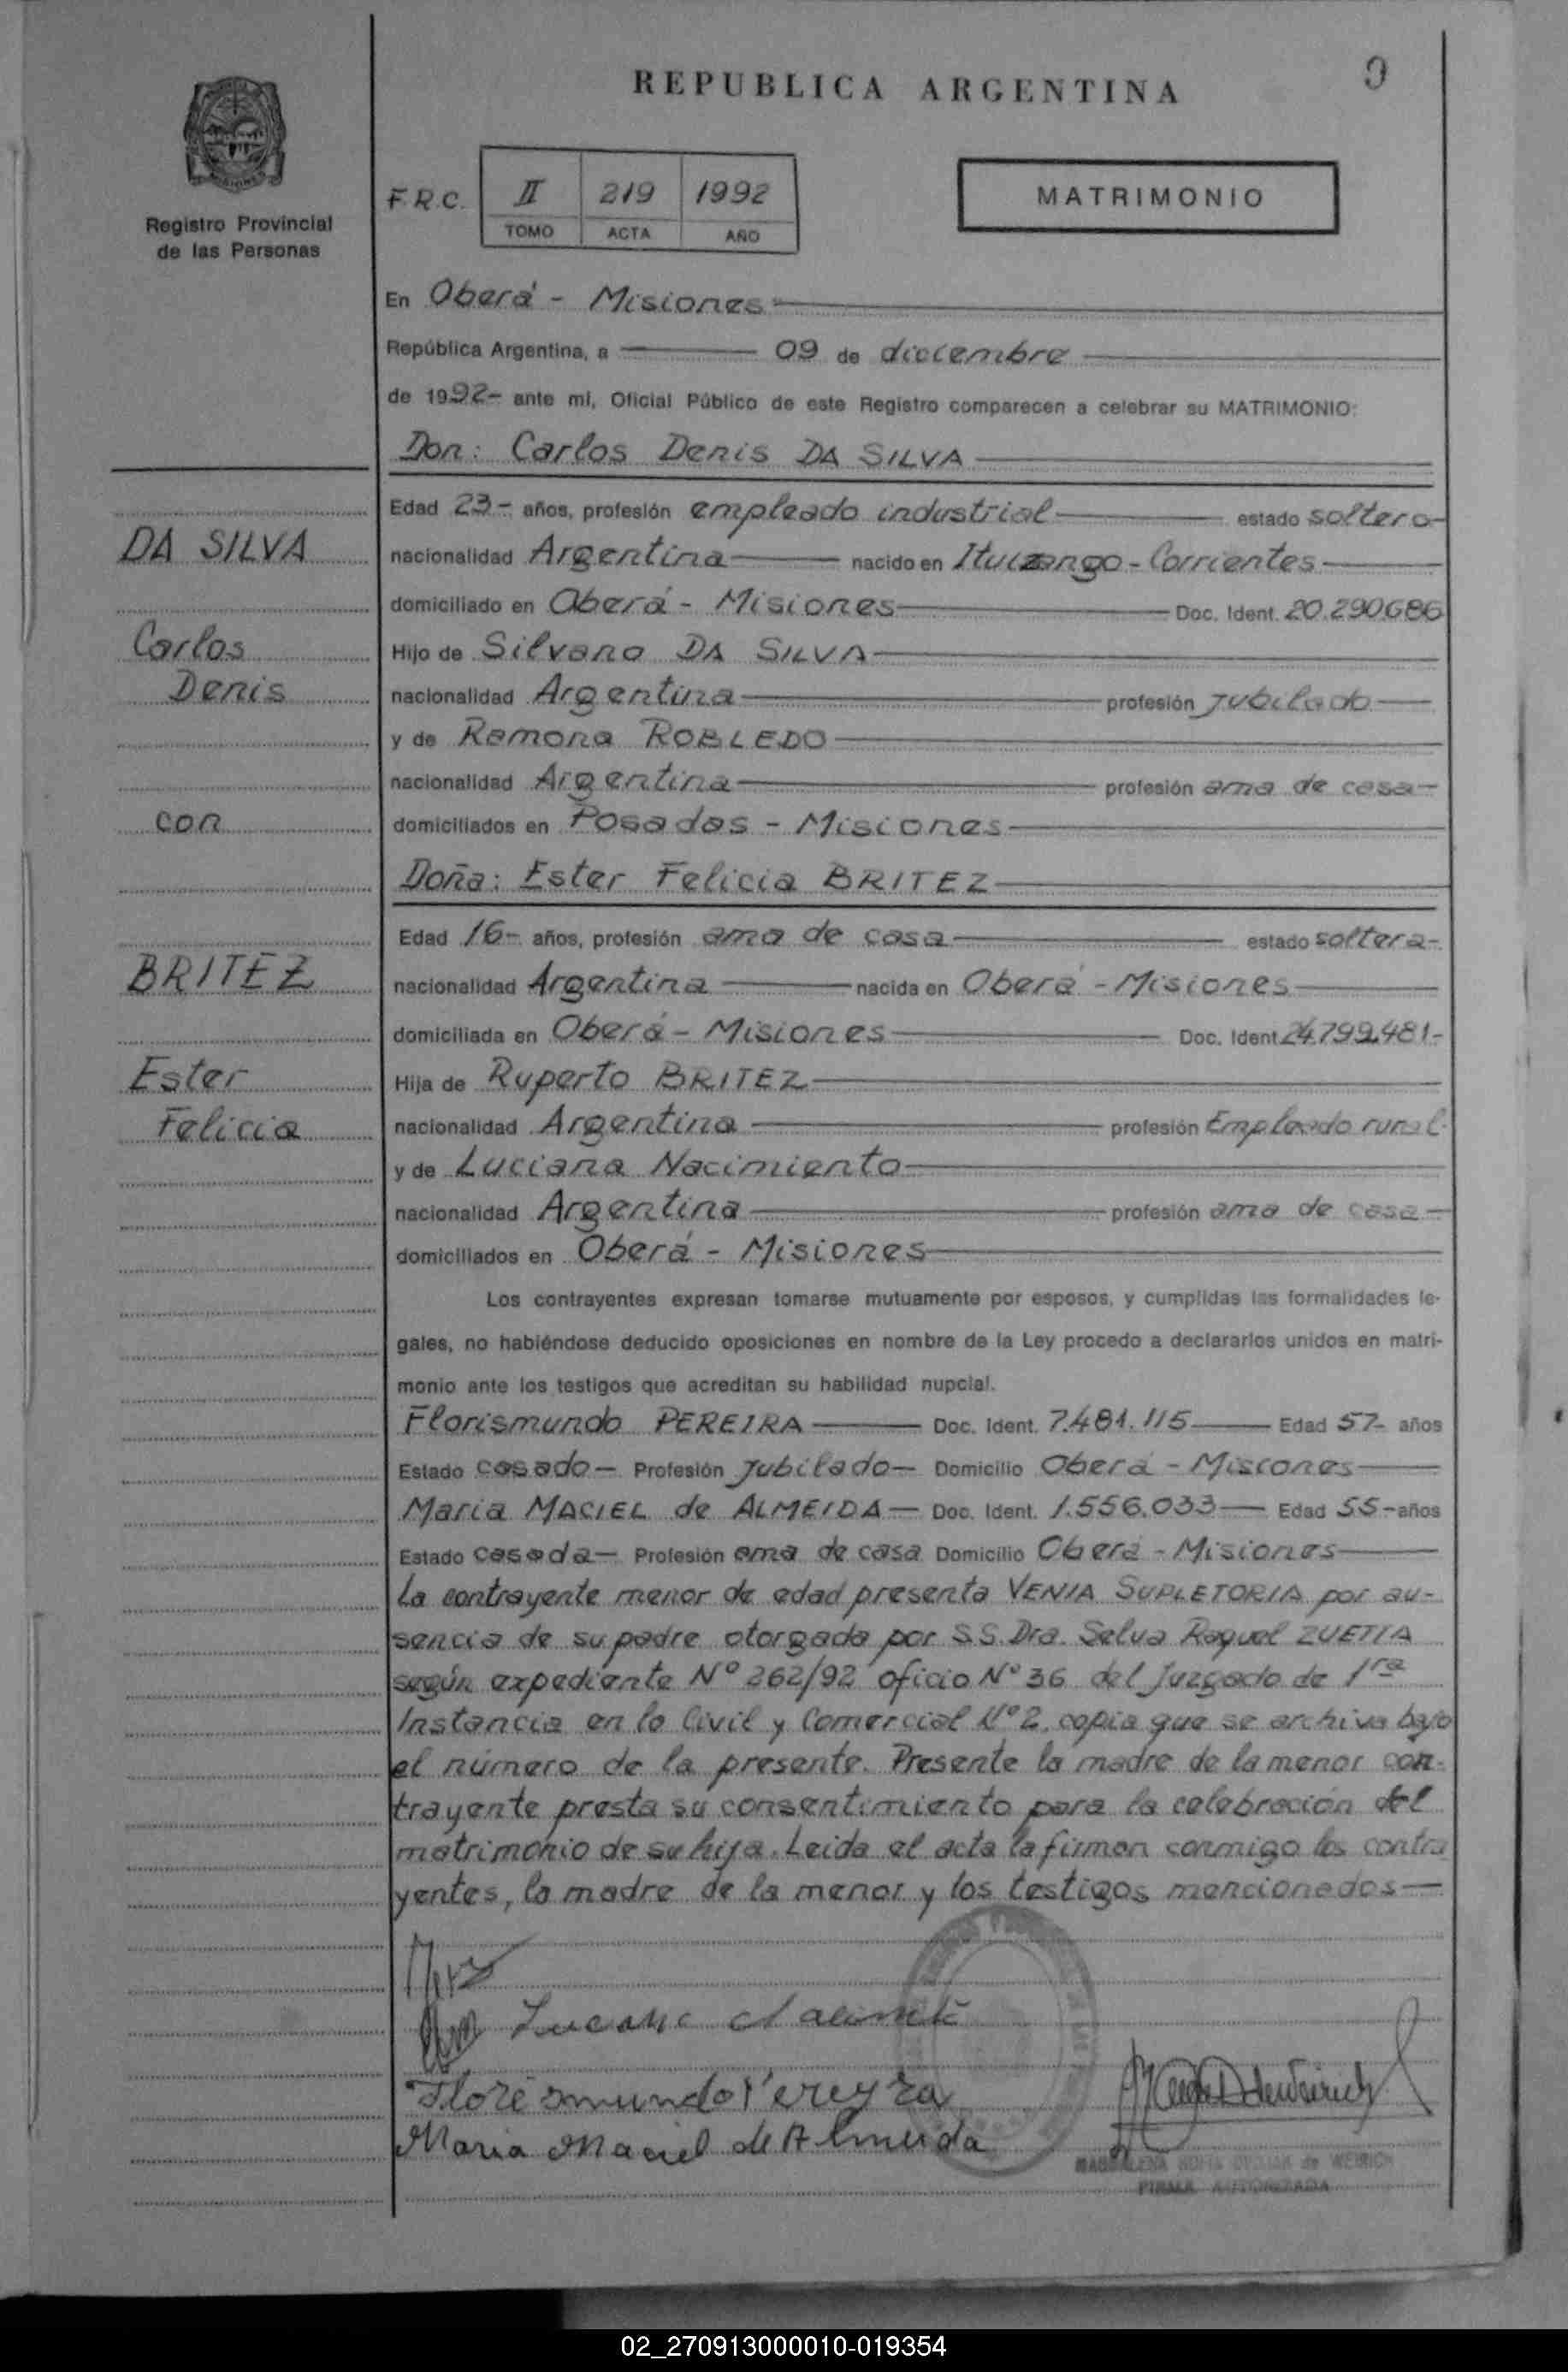 REPUBLICA ARGENTINA
Registro Provincial
de las Personas
F.R.C. II 219 1992
TOMO ACTA AÑO
MATRIMONIO
En Oberá - Misiones
República Argentina, a 09 de diciembre
de 1992- ante mí, Oficial Público de este Registro comparecen a celebrar su MATRIMONIO:
Don: Carlos Denis DA SILVA
Edad 23- años, profesión empleado industrial estado soltero-
DA SILVA
nacionalidad Argentina nacido en Ituzaingo - Corrientes
domiciliado en Oberá - Misiones Doc. Ident. 20.290686
Carlos
Hijo de Silvano DA SILVA
Denis
nacionalidad Argentina profesión Jubilado
y de Ramona ROBLEDO
nacionalidad Argentina profesión ama de casa-
con
domiciliados en Posadas - Misiones
Doña: Ester Felicia BRITEZ
Edad 16- años, profesión ama de casa estado soltera-
BRITEZ
nacionalidad Argentina nacida en Oberá - Misiones
domiciliada en Oberá - Misiones Doc. Ident. 24.799.481-
Ester
Hija de Ruperto BRITEZ
Felicia
nacionalidad Argentina profesión Empleado rural
y de Luciana Nacimiento
nacionalidad Argentina profesión ama de casa-
domiciliados en Oberá - Misiones
Los contrayentes expresan tomarse mutuamente por esposos, y cumplidas las formalidades le-
gales, no habiéndose deducido oposiciones en nombre de la Ley procedo a declararlos unidos en matri-
monio ante los testigos que acreditan su habilidad nupcial.
Florismundo PEREIRA Doc. Ident. 7.481.115 Edad 57- años
Estado casado- Profesión Jubilado- Domicilio Oberá - Misiones
Maria MACIEL de ALMEIDA- Doc. Ident. 1.556.033 Edad 55- años
Estado casada- Profesión ama de casa Domicilio Oberá - Misiones
La contrayente menor de edad presenta VENIA SUPLETORIA por au-
sencia de su padre otorgada por S.S. Dra. Selva Raquel ZUETTA
según expediente Nº 262/92 oficio Nº 36 del Juzgado de 1ra
Instancia en lo Civil y Comercial Nº 2, copia que se archiva bajo
el número de la presente. Presente la madre de la menor con-
trayente presta su consentimiento para la celebración del
matrimonio de su hija. Leida el acta la firman conmigo los contra
yentes, la madre de la menor y los testigos mencionados-
Floresmundo Pereyra
Maria Maciel de Almeida
de WEIRICH
FIRMA AUTORIZADA
02_270913000010-019354